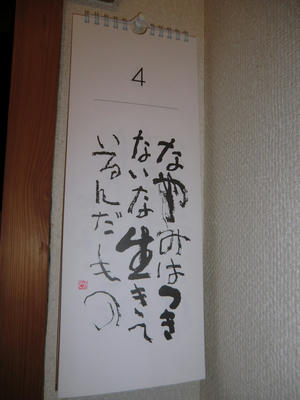 4
なやみはつき
ないな生きて
いるんだもの